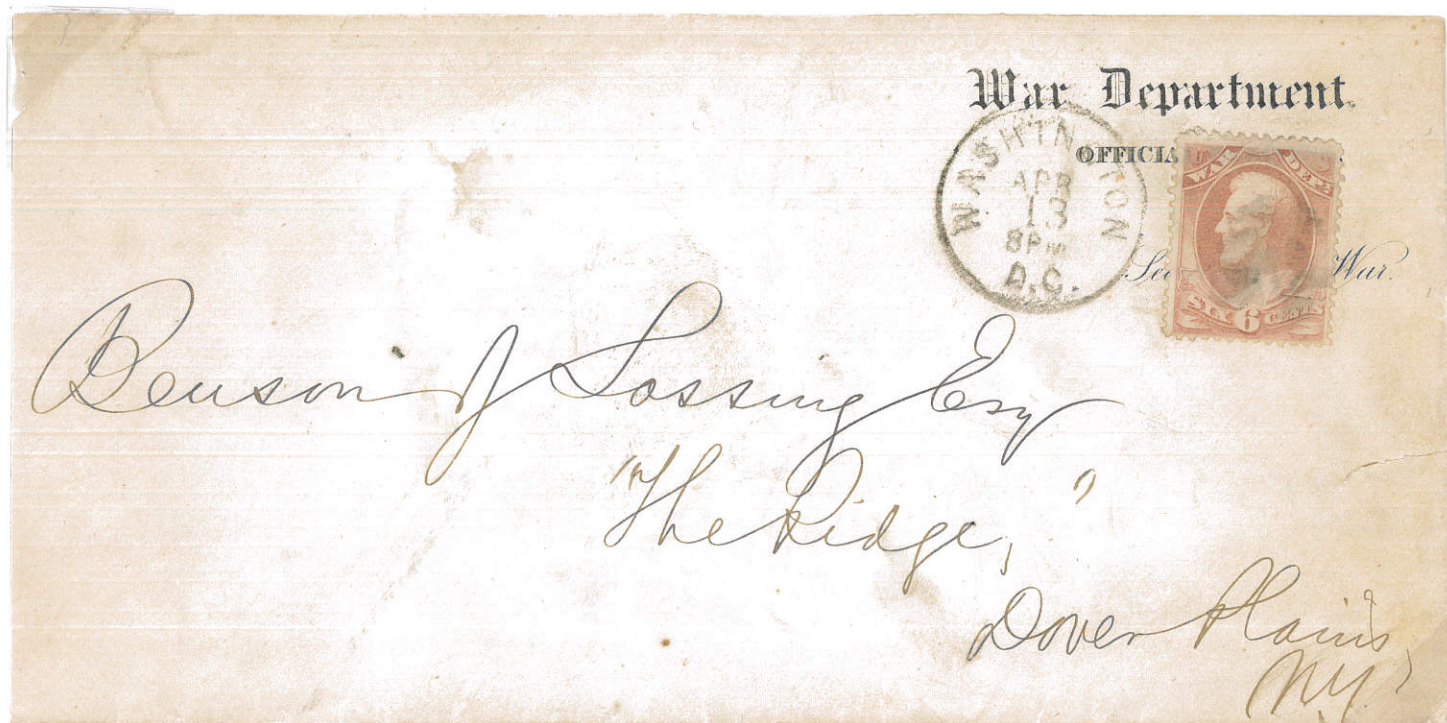 War Department.
OFFICIA
WASHINGTON
APR
13
8PM
D.C.
U S
WAR DEPT
SIX 6 CENTS
Sec War.
Benson J Lossing Esq
"The Ridge,"
Dover Plains,
N.Y.